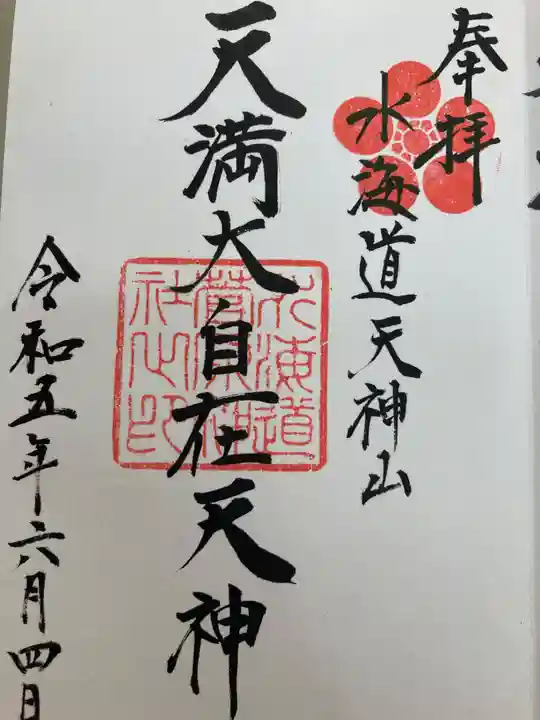 奉拝
水海道天神山
天満大自在天神
水海道
菅原神
社之印
令和五年六月四日